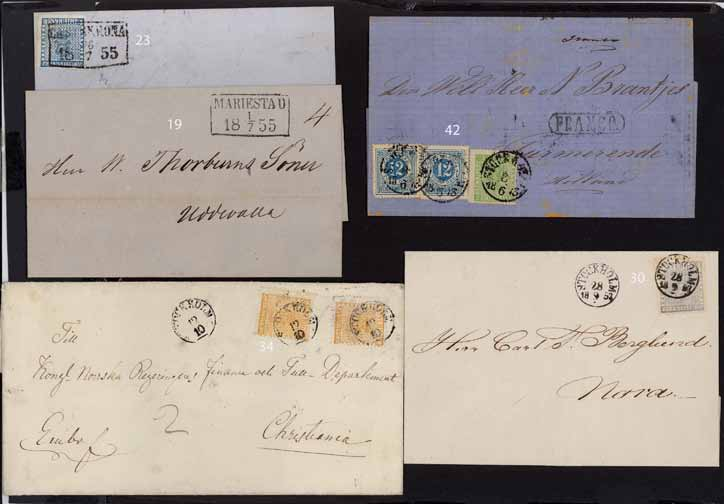 23
18 7 55
19
MARIESTAD
1
18 7 55
4
Herr W. Thorburns Söner
Uddevalla
Franco
Den Well Heer N Brantjes
42
FRANCO
Purmerende
Holland
12
34
STOCKHOLM
12
10
STOCKHOLM
12
10
STOCKHOLM
12
10
Till
Kongl. Norrska Regeringens Finance och Tull-Departement
2
Christiania
30
STOCKHOLM
28
18 9 57
STOCKHOLM
28
9
Herr Carl F. Berglund
Nora